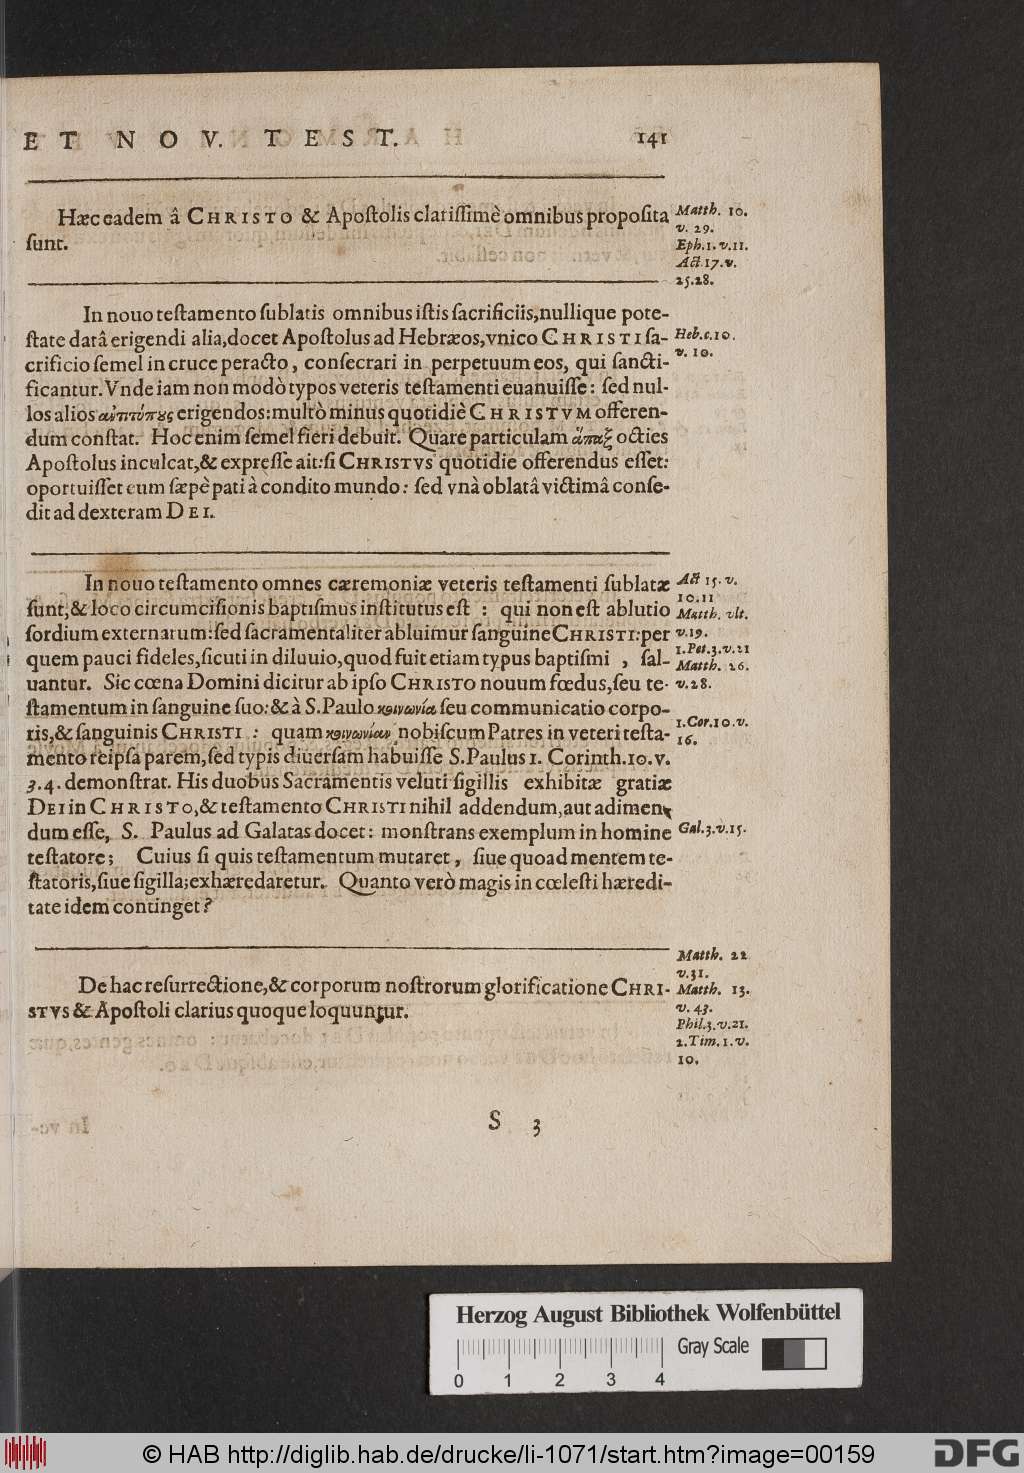 ET NOV. TEST. 141
Hæc eadem â CHRISTO & Apoſtolis clariſſimè omnibus propoſita
ſunt.
Matth. 10.
v. 29.
Eph. 1. v. 11.
Act. 17. v.
25. 28.
In nouo teſtamento ſublatis omnibus iſtis ſacrificiis, nullique pote-
ſtate datâ erigendi alia, docet Apoſtolus ad Hebræos, vnico CHRISTI ſa-
crificio ſemel in cruce peracto, conſecrari in perpetuum eos, qui ſancti-
ficantur. Vnde iam non modò typos veteris teſtamenti euanuiſſe: ſed nul-
los alios αὐπτύπους erigendos: multò minus quotidiè CHRISTVM offeren-
dum conſtat. Hoc enim ſemel fieri debuit. Quare particulam ἅπαξ octies
Apoſtolus inculcat, & expreſſe ait: ſi CHRISTVS quotidie offerendus eſſet:
oportuiſſet eum ſæpè pati à condito mundo: ſed vnà oblatâ victimâ conſe-
dit ad dexteram DEI.
Heb. c. 10.
v. 10.
In nouo teſtamento omnes cæremoniæ veteris teſtamenti ſublatæ
ſunt, & loco circumciſionis baptiſmus inſtitutus eſt : qui non eſt ablutio
ſordium externarum: ſed ſacramentaliter abluimur ſanguine CHRISTI: per
quem pauci fideles, ſicuti in diluuio, quod fuit etiam typus baptiſmi , ſal-
uantur. Sic cœna Domini dicitur ab ipſo CHRISTO nouum fœdus, ſeu te-
ſtamentum in ſanguine ſuo: & à S. Paulo κοινωνία ſeu communicatio corpo-
ris, & ſanguinis CHRISTI : quam κοινωνίαν nobiſcum Patres in veteri teſta-
mento reipſa parem, ſed typis diuerſam habuiſſe S. Paulus 1. Corinth. 10. v.
3. 4. demonſtrat. His duobus Sacramentis veluti ſigillis exhibitæ gratiæ
DEI in CHRISTO, & teſtamento CHRISTI nihil addendum, aut adimen-
dum eſſe, S. Paulus ad Galatas docet: monſtrans exemplum in homine
teſtatore; Cuius ſi quis teſtamentum mutaret, ſiue quoad mentem te-
ſtatoris, ſiue ſigilla; exhæredaretur. Quanto verò magis in cœleſti hæredi-
tate idem continget?
Act 15. v.
10. 11
Matth. vlt.
v. 19.
1. Pet. 3. v. 21
Matth. 26.
v. 28.
1. Cor. 10. v.
16.
Gal. 3. v. 15.
De hac reſurrectione, & corporum noſtrorum glorificatione CHRI-
STVS & Apoſtoli clarius quoque loquuntur.
Matth. 22
v. 31.
Matth. 13.
v. 43.
Phil. 3. v. 21.
2. Tim. 1. v.
10.
S 3
Herzog August Bibliothek Wolfenbüttel
Gray Scale
0 1 2 3 4
© HAB http://diglib.hab.de/drucke/li-1071/start.htm?image=00159
DFG